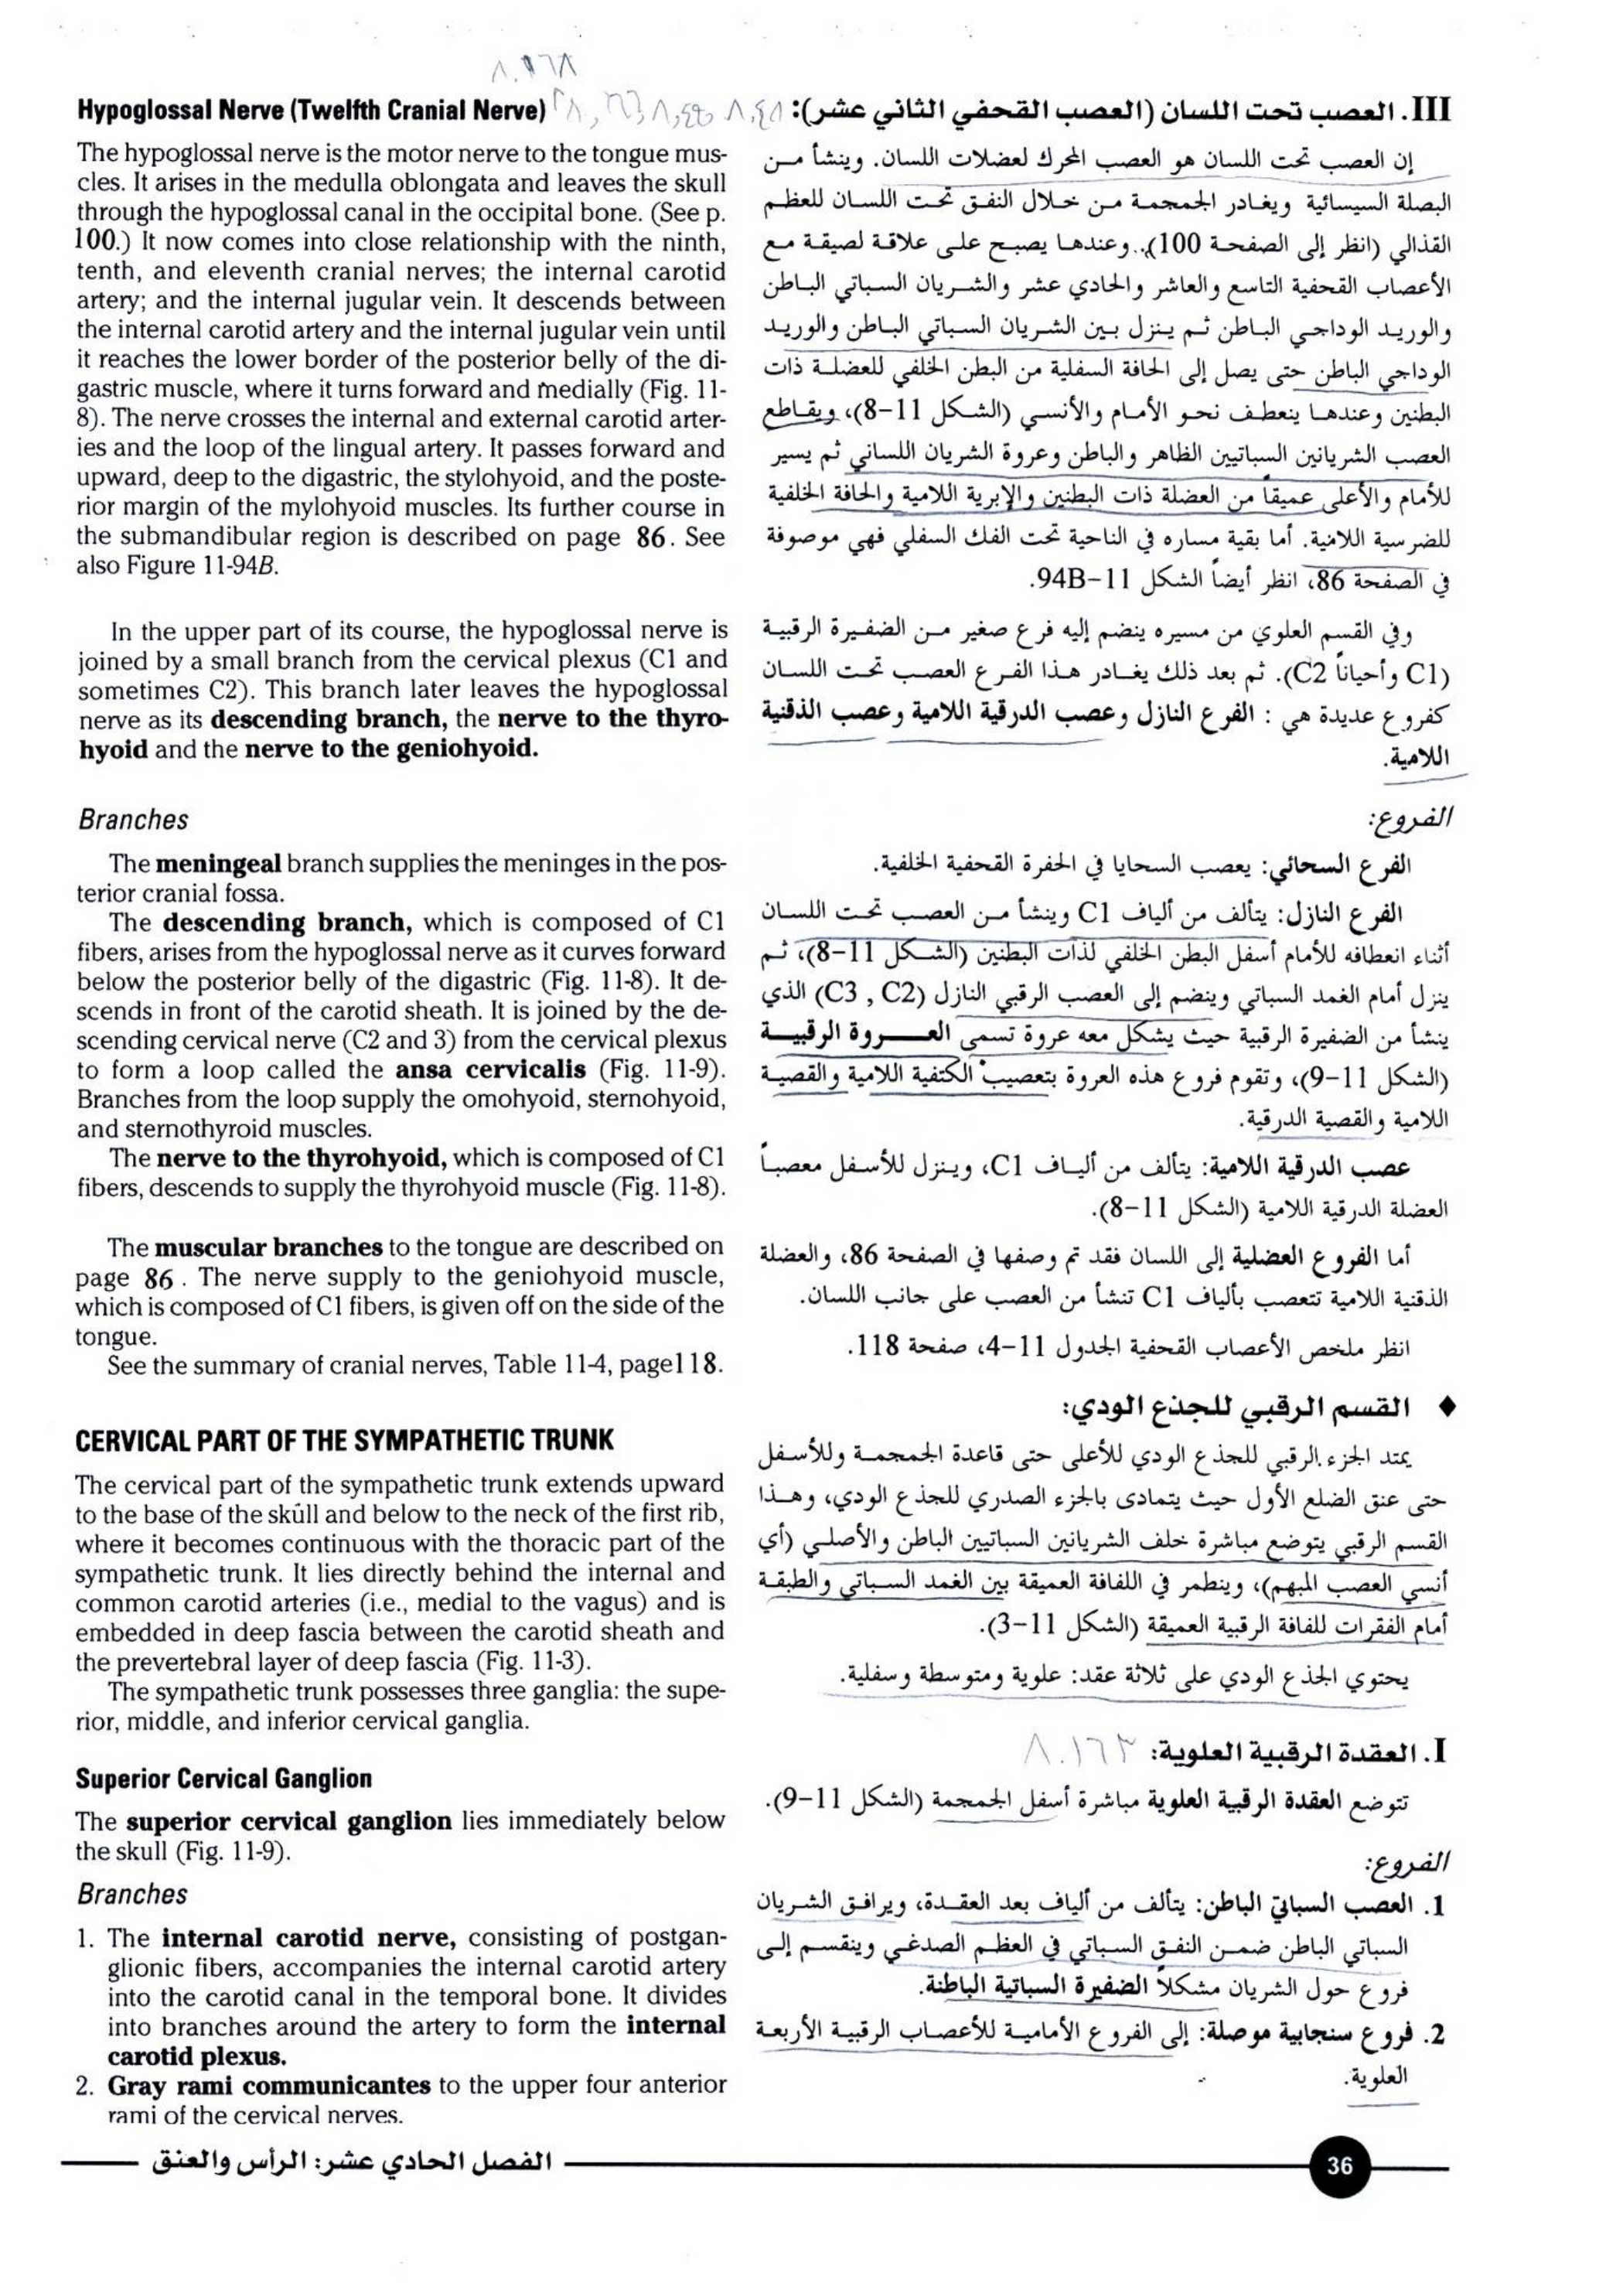 Hypoglossal Nerve (Twelfth Cranial Nerve)
The hypoglossal nerve is the motor nerve to the tongue mus-
cles. It arises in the medulla oblongata and leaves the skull
through the hypoglossal canal in the occipital bone. (See p.
100.) It now comes into close relationship with the ninth,
tenth, and eleventh cranial nerves; the internal carotid
artery; and the internal jugular vein. It descends between
the internal carotid artery and the internal jugular vein until
it reaches the lower border of the posterior belly of the di-
gastric muscle, where it turns forward and medially (Fig. 11-
8). The nerve crosses the internal and external carotid arter-
ies and the loop of the lingual artery. It passes forward and
upward, deep to the digastric, the stylohyoid, and the poste-
rior margin of the mylohyoid muscles. Its further course in
the submandibular region is described on page 86. See
also Figure 11-94B.
In the upper part of its course, the hypoglossal nerve is
joined by a small branch from the cervical plexus (C1 and
sometimes C2). This branch later leaves the hypoglossal
nerve as its descending branch, the nerve to the thyro-
hyoid and the nerve to the geniohyoid.
Branches
The meningeal branch supplies the meninges in the pos-
terior cranial fossa.
The descending branch, which is composed of C1
fibers, arises from the hypoglossal nerve as it curves forward
below the posterior belly of the digastric (Fig. 11-8). It de-
scends in front of the carotid sheath. It is joined by the de-
scending cervical nerve (C2 and 3) from the cervical plexus
to form a loop called the ansa cervicalis (Fig. 11-9).
Branches from the loop supply the omohyoid, sternohyoid,
and sternothyroid muscles.
The nerve to the thyrohyoid, which is composed of C1
fibers, descends to supply the thyrohyoid muscle (Fig. 11-8).
The muscular branches to the tongue are described on
page 86 . The nerve supply to the geniohyoid muscle,
which is composed of C1 fibers, is given off on the side of the
tongue.
See the summary of cranial nerves, Table 11-4, page118.
CERVICAL PART OF THE SYMPATHETIC TRUNK
The cervical part of the sympathetic trunk extends upward
to the base of the skull and below to the neck of the first rib,
where it becomes continuous with the thoracic part of the
sympathetic trunk. It lies directly behind the internal and
common carotid arteries (i.e., medial to the vagus) and is
embedded in deep fascia between the carotid sheath and
the prevertebral layer of deep fascia (Fig. 11-3).
The sympathetic trunk possesses three ganglia: the supe-
rior, middle, and inferior cervical ganglia.
Superior Cervical Ganglion
The superior cervical ganglion lies immediately below
the skull (Fig. 11-9).
Branches
1. The internal carotid nerve, consisting of postgan-
glionic fibers, accompanies the internal carotid artery
into the carotid canal in the temporal bone. It divides
into branches around the artery to form the internal
carotid plexus.
2. Gray rami communicantes to the upper four anterior
rami of the cervical nerves.
III. العصب تحت اللسان (العصب القحفي الثاني عشر):
إن العصب تحت اللسان هو العصب المحرك لعضلات اللسان. وينشأ من
البصلة السيسائية ويغادر الجمجمة من خلال النفق تحت اللسان للعظم
القذالي (انظر إلى الصفحة 100). وعندها يصبح على علاقة لصيقة مع
الأعصاب القحفية التاسع والعاشر والحادي عشر والشريان السباتي الباطن
والوريد الوداجي الباطن ثم ينزل بين الشريان السباتي الباطن والوريد
الوداجي الباطن حتى يصل إلى الحافة السفلية من البطن الخلفي للعضلة ذات
البطنين وعندها ينعطف نحو الأمام والأنسي (الشكل 11-8)، ويقاطع
العصب الشريانين السباتيين الظاهر والباطن وعروة الشريان اللساني ثم يسير
للأمام والأعلى عميقاً من العضلة ذات البطنين والإبرية اللامية والحافة الخلفية
للضرسية اللامية. أما بقية مساره في الناحية تحت الفك السفلي فهي موصوفة
في الصفحة 86، انظر أيضاً الشكل 11-94B.
وفي القسم العلوي من مسيره ينضم إليه فرع صغير من الضفيرة الرقبية
(C1 وأحياناً C2). ثم بعد ذلك يغادر هذا الفرع العصب تحت اللسان
كفروع عديدة هي : الفرع النازل وعصب الدرقية اللامية وعصب الذقنية
اللامية.
الفروع:
الفرع السحائي: يعصب السحايا في الحفرة القحفية الخلفية.
الفرع النازل: يتألف من ألياف C1 وينشأ من العصب تحت اللسان
أثناء انعطافه للأمام أسفل البطن الخلفي لذات البطنين (الشكل 11-8)، ثم
ينزل أمام الغمد السباتي وينضم إلى العصب الرقبي النازل (C3 , C2) الذي
ينشأ من الضفيرة الرقبية حيث يشكل معه عروة تسمى العروة الرقبية
(الشكل 11-9)، وتقوم فروع هذه العروة بتعصيب الكتفية اللامية والقصية
اللامية والقصية الدرقية.
عصب الدرقية اللامية: يتألف من ألياف C1، وينزل للأسفل معصباً
العضلة الدرقية اللامية (الشكل 11-8).
أما الفروع العضلية إلى اللسان فقد تم وصفها في الصفحة 86، والعضلة
الذقنية اللامية تتعصب بألياف C1 تنشأ من العصب على جانب اللسان.
انظر ملخص الأعصاب القحفية الجدول 11-4، صفحة 118.
♦ القسم الرقبي للجذع الودي:
يمتد الجزء الرقبي للجذع الودي للأعلى حتى قاعدة الجمجمة وللأسفل
حتى عنق الضلع الأول حيث يتمادى بالجزء الصدري للجذع الودي، وهذا
القسم الرقبي يتوضع مباشرة خلف الشريانين السباتيين الباطن والأصلي (أي
أنسي العصب المبهم)، وينطمر في اللفافة العميقة بين الغمد السباتي والطبقة
أمام الفقرات للفافة الرقبية العميقة (الشكل 11-3).
يحتوي الجذع الودي على ثلاثة عقد: علوية ومتوسطة وسفلية.
I. العقدة الرقبية العلوية: ٨.١٦٣
تتوضع العقدة الرقبية العلوية مباشرة أسفل الجمجمة (الشكل 11-9).
الفروع:
1. العصب السباتي الباطن: يتألف من ألياف بعد العقدة، ويرافق الشريان
السباتي الباطن ضمن النفق السباتي في العظم الصدغي وينقسم إلى
فروع حول الشريان مشكلاً الضفيرة السباتية الباطنة.
2. فروع سنجابية موصلة: إلى الفروع الأمامية للأعصاب الرقبية الأربعة
العلوية.
الفصل الحادي عشر: الرأس والعنق
36